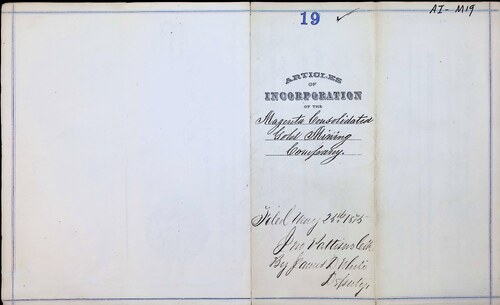 19 ✓
AI- M19
ARTICLES
OF
INCORPORATION
OF THE
Magenta Consolidated
Gold Mining
Company.
Filed May 25th 1875
Jno Pattison Clk
By James D White
Deputy.